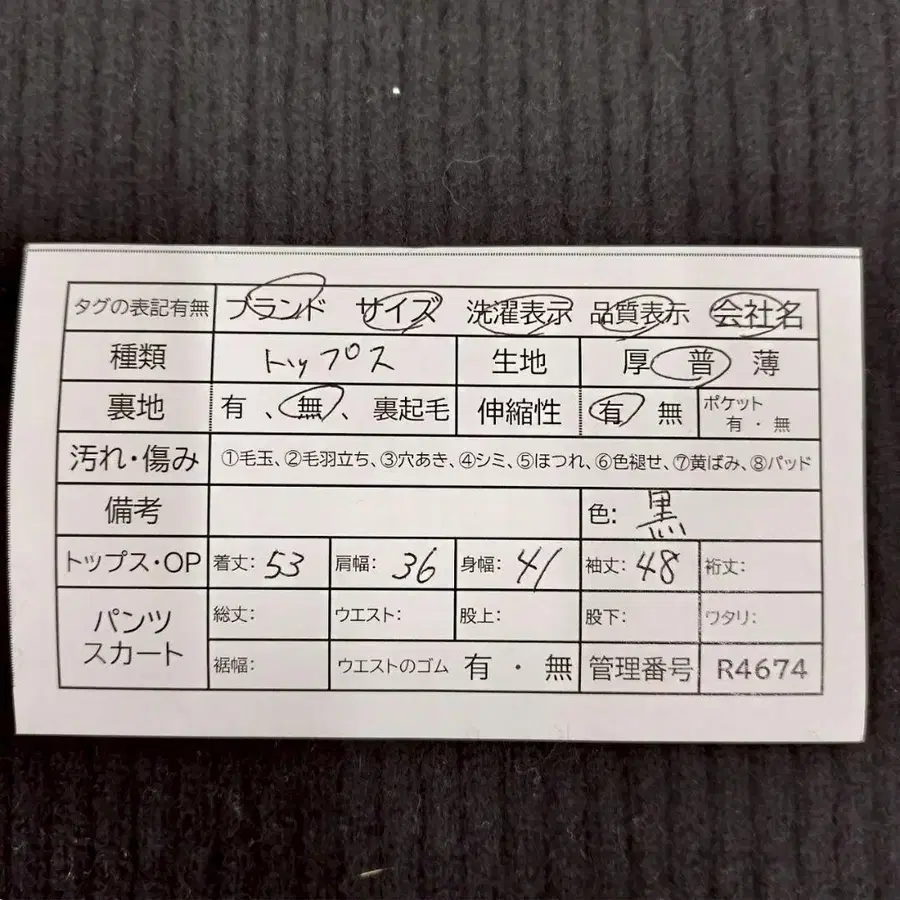 タグの表記有無 ブランド サイズ 洗濯表示 品質表示 会社名
種類 トップス 生地 厚 普 薄
裏地 有、無、裏起毛 伸縮性 有 無 ポケット 有・無
汚れ・傷み ①毛玉、②毛羽立ち、③穴あき、④シミ、⑤ほつれ、⑥色褪せ、⑦黄ばみ、⑧パッド
備考 色: 黒
トップス・OP 着丈: 53 肩幅: 36 身幅: 41 袖丈: 48 裄丈:
パンツ スカート 総丈: ウエスト: 股上: 股下: ワタリ:
裾幅: ウエストのゴム 有・無 管理番号 R4674